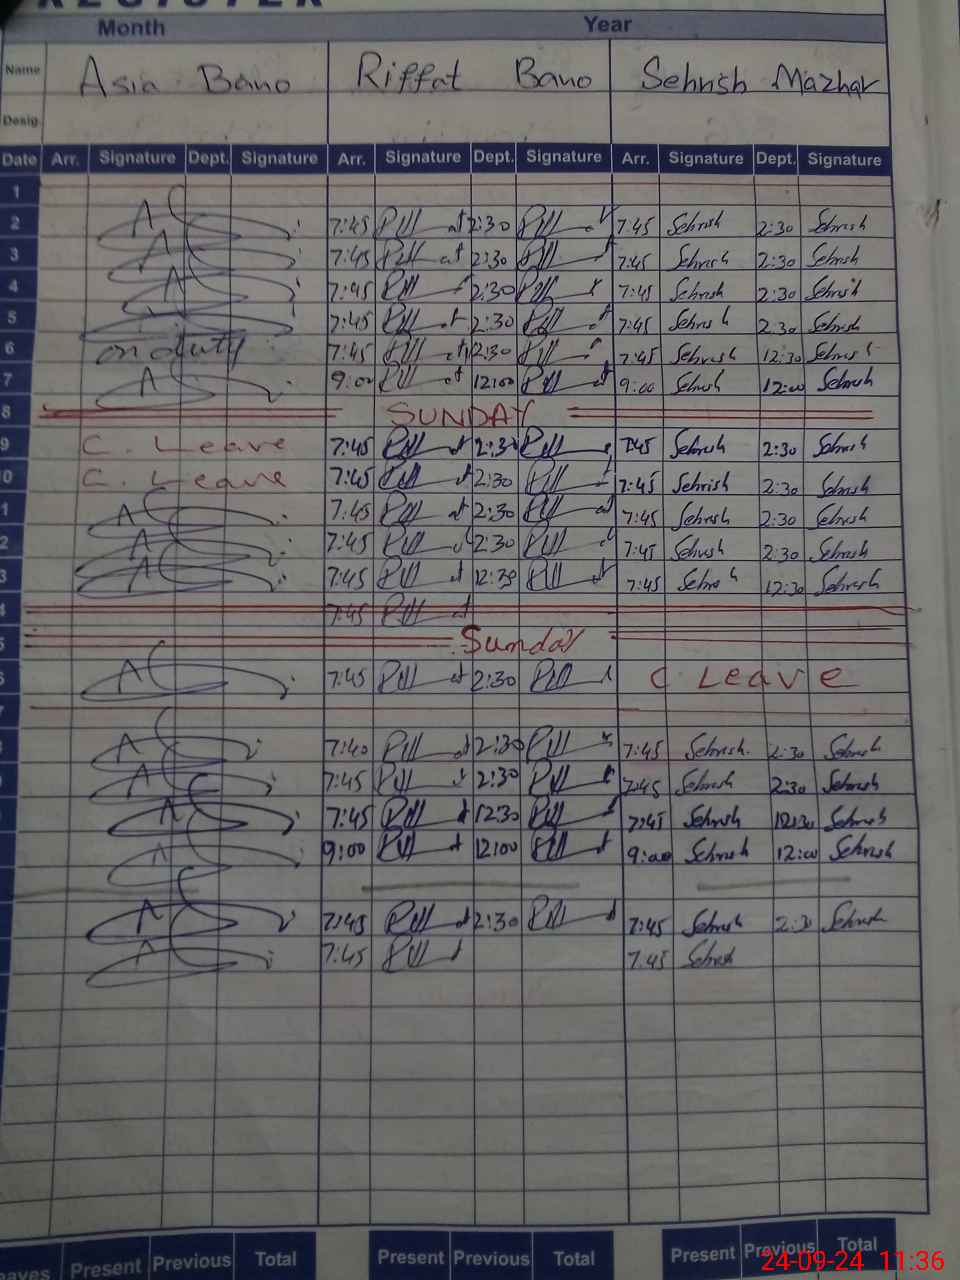 REGISTER
Month Year
Name Asia Bano Riffat Bano Sehrish Mazhar
Desig.
Date Arr. Signature Dept. Signature Arr. Signature Dept. Signature Arr. Signature Dept. Signature
1
2 A 7:45 2:30 7:45 Sehrish 2:30 Sehrish
3 A 7:45 2:30 7:45 Sehrish 2:30 Sehrish
4 A 7:45 2:30 7:45 Sehrish 2:30 Sehrish
5 7:45 2:30 7:45 Sehrish 2:30 Sehrish
6 on duty 7:45 12:30 7:45 Sehrish 12:30 Sehrish
7 A 9:00 12:00 9:00 Sehrish 12:00 Sehrish
8 SUNDAY
9 C. Leave 7:45 2:30 7:45 Sehrish 2:30 Sehrish
0 C. Leave 7:45 2:30 7:45 Sehrish 2:30 Sehrish
1 A 7:45 2:30 7:45 Sehrish 2:30 Sehrish
2 A 7:45 2:30 7:45 Sehrish 2:30 Sehrish
3 A 7:45 12:30 7:45 Sehrish 12:30 Sehrish
4 7:45
5 Sunday
6 A 7:45 2:30 C Leave
7
A 7:40 2:30 7:45 Sehrish 2:30 Sehrish
A 7:45 2:30 7:45 Sehrish 2:30 Sehrish
A 7:45 12:30 7:45 Sehrish 12:30 Sehrish
A 9:00 12:00 9:00 Sehrish 12:00 Sehrish
A 7:45 2:30 7:45 Sehrish 2:30 Sehrish
A 7:45 7:45 Sehrish
eaves Present Previous Total Present Previous Total Present Previous Total
24-09-24 11:36